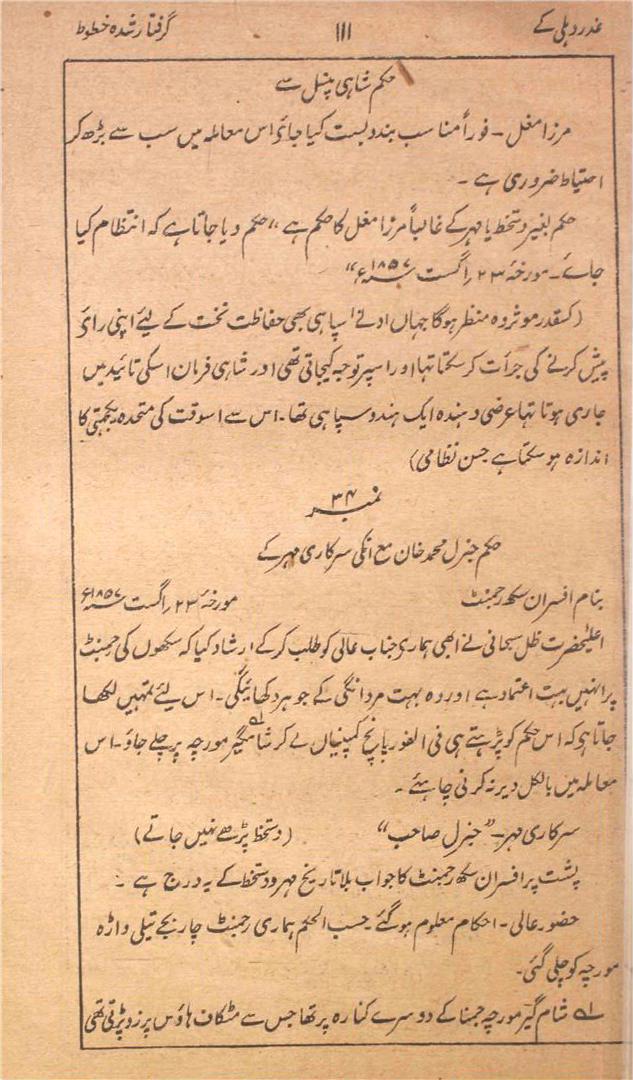 غدر دہلی کے ۱۱۱ گرفتار شدہ خطوط
حکم شاہی پنسل سے
مرزا مغل ۔ فوراً مناسب بندوبست کیا جائے اس معاملہ میں سب سے بڑھ کر
احتیاط ضروری ہے ۔
حکم بغیر دستخط یا مہر کے غالباً مرزا مغل کا حکم ہے ‘‘ حکم دیا جاتا ہے کہ انتظام کیا
جائے ۔ مورخہ ۲۳ ؍ اگست ۱۸۵۷ء ‘‘
(کسقدر موثر وہ منظر ہوگا جہاں ادنےٰ سپاہی بھی حفاظت تخت کے لیئے اپنی رائے
پیش کرنے کی جرأت کر سکتا تہا اور اسپر توجہ کیجاتی تھی اور شاہی فرمان اسکی تائید میں
جاری ہوتا تہا عرضی دہندہ ایک ہندو سپاہی تھا ۔ اس سے اسوقت کی متحدہ یکجہتی کا
اندازہ ہو سکتا ہے حسن نظامی)
نمبر ۳۴
حکم جنرل محمد خان مع انکی سرکاری مہر کے
بنام افسران سکھ رجمنٹ مورخہ ۲۳ ؍ اگست ۱۸۵۷ء
اعلیٰحضرت ظل سبحانی نے ابھی ہماری جناب عالی کو طلب کر کے ارشاد کیا کہ سکھوں کی رجمنٹ
پر انہیں بہت اعتماد ہے اور وہ بہت مردانگی کے جوہر دکھائیگی ۔ اس لیئے تمہیں لکھا
جاتا ہی کہ اس حکم کو پڑہتے ہی فی الفور پانچ کمپنیاں لے کر شامگیر ۱ مورچہ پر چلے جاؤ ۔ اس
معاملہ میں بالکل دیر نہ کرنی چاہئے ۔
سرکاری مہر ۔ ’’جنرل صاحب‘‘ (دستخط پڑھے نہیں جاتے)
پشت پر افسران سکھ رجمنٹ کا جواب بلا تاریخ مہر و دستخط کے یہ درج ہے ۔
حضور عالی ۔ احکام معلوم ہو گئے حسب الحکم ہماری رجمنٹ چار بجے تیلی واڑہ
مورچہ کو چلی گئی ۔
۱ شام گیر مورچہ جمنا کے دوسرے کنارہ پر تھا جس سے مٹکاف ہاؤس پر زد پڑتی تھی